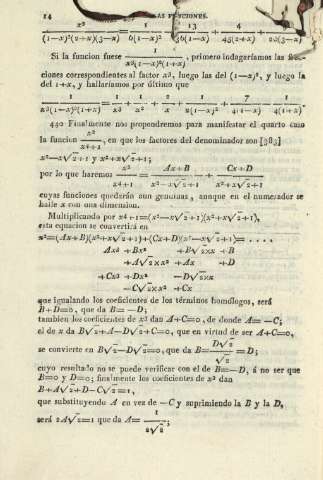 14 LAS FUNCIONES.
x³/((1—x)²(2+x)(3—x)) = 1/(6(1—x)²) 13/(36(1—x)) + 4/(45(2+x)) + /(20(3—x))
Si la funcion fuese 1/(x³(1—x)²(1+x)), primero indagaríamos las frac-
ciones correspondientes al factor x³, luego las del (1—x)², y luego la
del 1+x, y hallaríamos por último que
1/(x³(1—x)²(1+x)) = 1/x³ + 1/x² + 2/x + 1/(2(1—x)²) + 7/(4(1—x)) — 1/(4(1+x)).
440 Finalmente nos propondremos para manifestar el quarto caso
la funcion x²/(x4+1), en que los factores del denominador son [383]
x²—x√2+1 y x²+x√2+1;
por lo que haremos x²/(x4+1) = (Ax+B)/(x²—x√2+1) + (Cx+D)/(x²+x√2+1)
cuyas funciones quedarán aun genuinas, aunque en el numerador se
halle x con una dimension.
Multiplicando por x4+1=(x²—x√2+1)(x²+x√2+1),
esta equacion se convertirá en
x²=(Ax+B)(x²+x√2+1)+(Cx+D)(x²—x√2+1)= . . . .
Ax3 +Bx² +B√2xx +B
+A√2xx² +Ax +D
+Cx3 +Dx² —D√2xx
—C√2xx² +Cx
que igualando los coeficientes de los términos homólogos, será
B+D=0, que da B=—D;
tambien los coeficientes de x3 dan A+C=0, de donde A=—C;
el de x da B√2+A—D√2+C=0, que en virtud de ser A+C=0,
se convierte en B√2—D√2=0, que da B=D√2/√2=D;
cuyo resultado no se puede verificar con el de B=—D, á no ser que
B=0 y D=0; finalmente los coeficientes de x² dan
B+A√2+D—C√2=1,
que substituyendo A en vez de —C y suprimiendo la B y la D,
será 2A√2=1 que da A=1/(2√2);